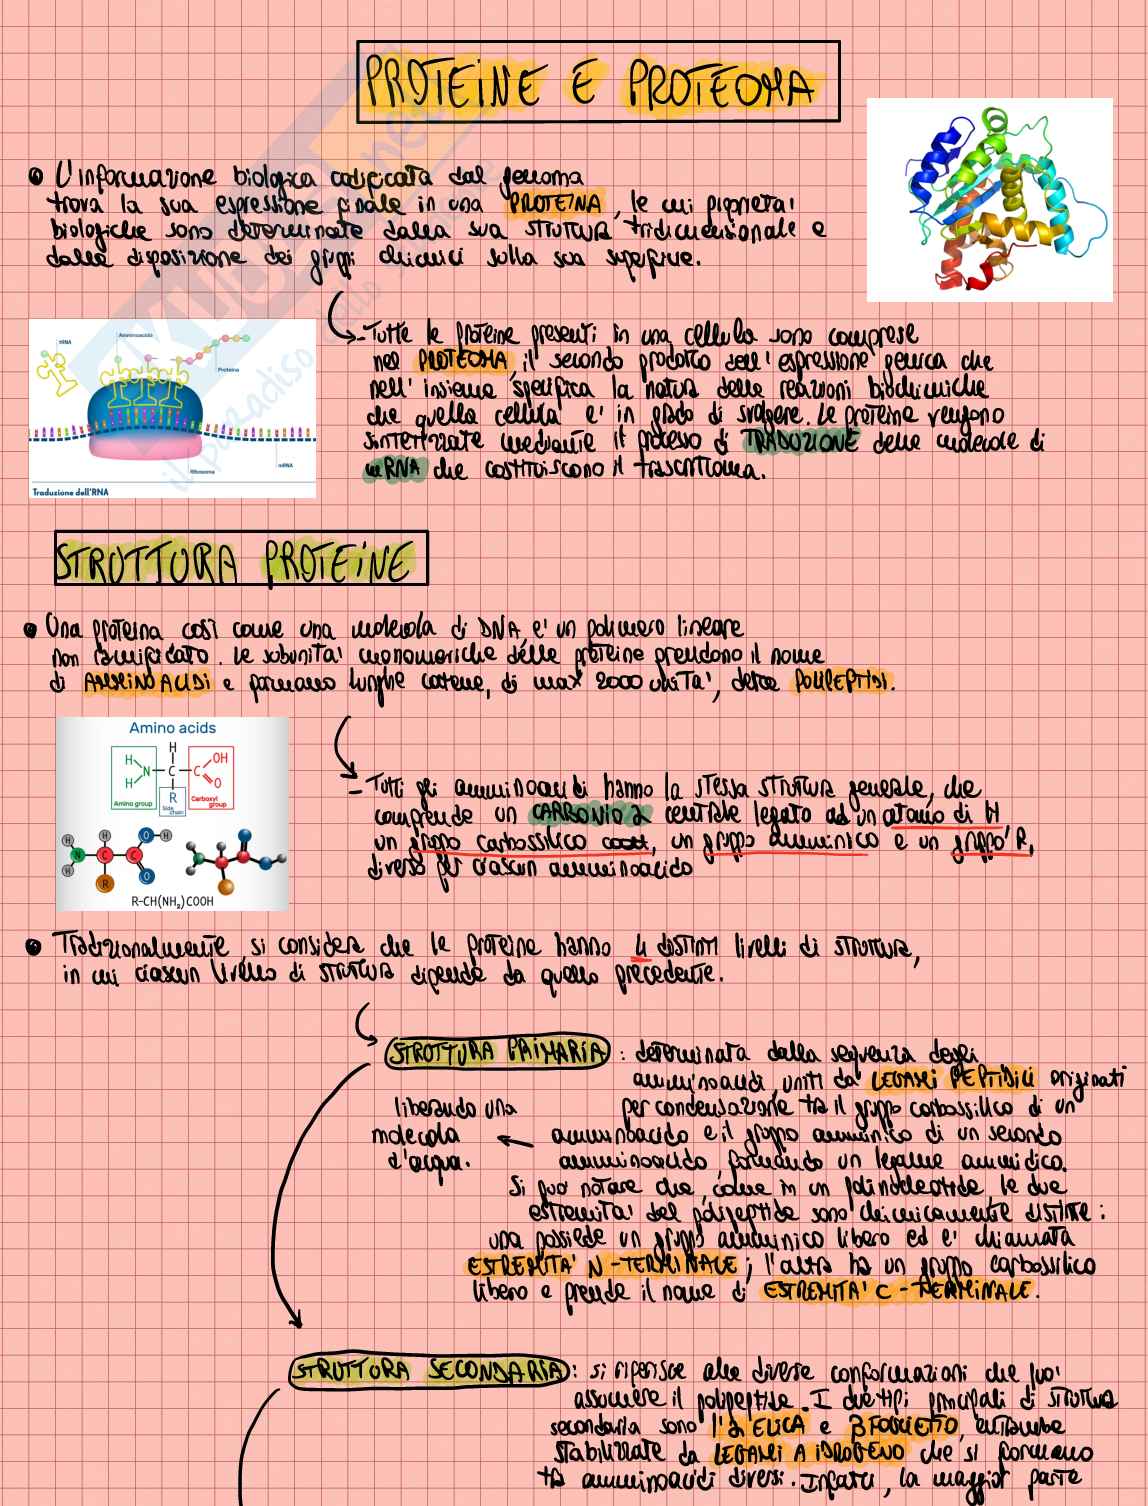 PROTEINE E PROTEOMA
• L'informazione biologica codificata dal genoma
trova la sua espressione finale in una PROTEINA, le cui proprietà
biologiche sono determinate dalla sua struttura tridimensionale e
dalla disposizione dei gruppi chimici sulla sua superficie.
- Tutte le proteine presenti in una cellula sono comprese
nel PROTEOMA, il secondo prodotto dell'espressione genica che
nell'insieme specifica la natura delle reazioni biochimiche
che quella cellula e' in grado di svolgere. Le proteine vengono
sintetizzate mediante il processo di TRADUZIONE delle molecole di
mRNA che costituiscono il trascrittoma.
tRNA
Aminoacido
Proteina
Ribosoma
mRNA
Traduzione dell'RNA
STRUTTURA PROTEINE
• Una proteina così come una molecola di DNA, e' un polimero lineare
non ramificato. Le subunita' monomeriche delle proteine prendono il nome
di AMMINOACIDI e formano lunghe catene, di max 2000 unita', dette POLIPEPTIDI.
Amino acids
H
H
OH
N
C
C
H
O
R
Amino group
Side chain
Carboxyl group
H
H
O
H
N
C
C
H
R
O
R-CH(NH2)COOH
- Tutti gli amminoacidi hanno la stessa struttura generale, che
comprende un CARBONIO α centrale legato ad un atomo di H
un gruppo carbossilico, un gruppo amminico e un gruppo R,
diverso per ciascun amminoacido
• Tradizionalmente, si considera che le proteine hanno 4 distinti livelli di struttura,
in cui ciascun livello di struttura dipende da quello precedente.
STRUTTURA PRIMARIA : determinata dalla sequenza degli
amminoacidi, uniti da LEGAMI PEPTIDICI originati
per condensazione tra il gruppo carbossilico di un
amminoacido e il gruppo amminico di un secondo
amminoacido, formando un legame ammidico.
liberando una
molecola
d'acqua.
Si puo' notare che, come in un polinucleotide, le due
estremita' del polipeptide sono chimicamente distinte :
una possiede un gruppo amminico libero ed e' chiamata
ESTREMITA' N-TERMINALE ; l'altra ha un gruppo carbossilico
libero e prende il nome di ESTREMITA' C-TERMINALE.
STRUTTURA SECONDARIA : si riferisce alle diverse conformazioni che puo'
assumere il polipeptide. I due tipi principali di struttura
secondaria sono l'α ELICA e β FOGLIETTO, entrambe
stabilizzate da LEGAMI A IDROGENO che si formano
tra amminoacidi diversi. Infatti, la maggior parte